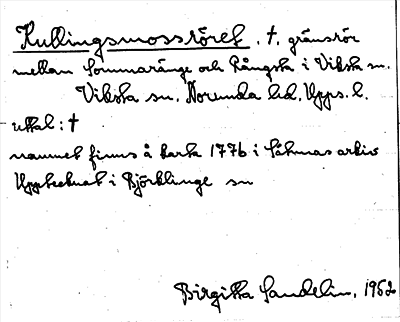 Kullingsmossröret, †, gränsrör
mellan Sommaränge och Rångsta i Viksta sn.
Viksta sn, Norunda hd, Upps. l.
uttal: †
namnet finns å karta 1776 i Säknas arkiv
Upptecknat i Björklinge sn
Birgitta Sandelin, 1952